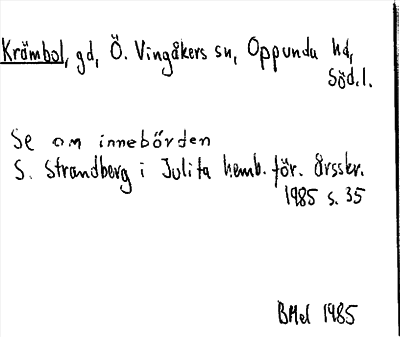 Krämbol, gd, Ö. Vingåkers sn, Oppunda hd,
Söd.l.
Se om innebörden
S. Strandberg i Julita hemb.för. årsskr.
1985 s. 35
BMel 1985